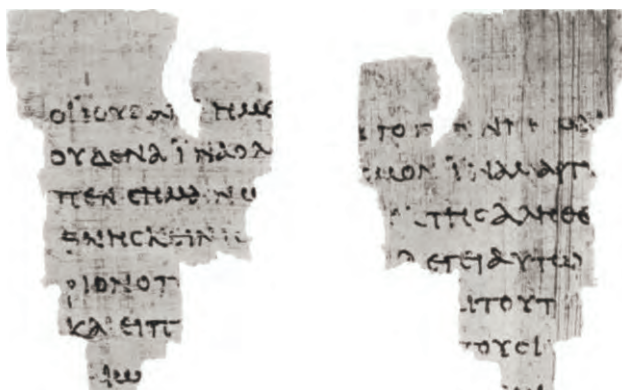 ΟΙ ΙΟΥΔΑΙ ΗΜΕ
ΟΥΔΕΝΑ ΪΝΑ Ο Λ
ΠΕΝ CΗΜΑΙΝΩ
ΘΝΗCΚΕΙΝ ΙC
ΡΙΟΝ Ο Π
ΚΑΙ ΕΙΠ
ΑΙΩ
ΤΟ ΓΕΓΕΝΝΗΜΑΙ
CΜΟΝ ΪΝΑ ΜΑΡΤΥ
ΤΗC ΑΛΗΘΕ
ΛΕΓΕΙ ΑΥΤΩ
ΑΙ ΤΟΥΤ
ΤΟΥC Ι